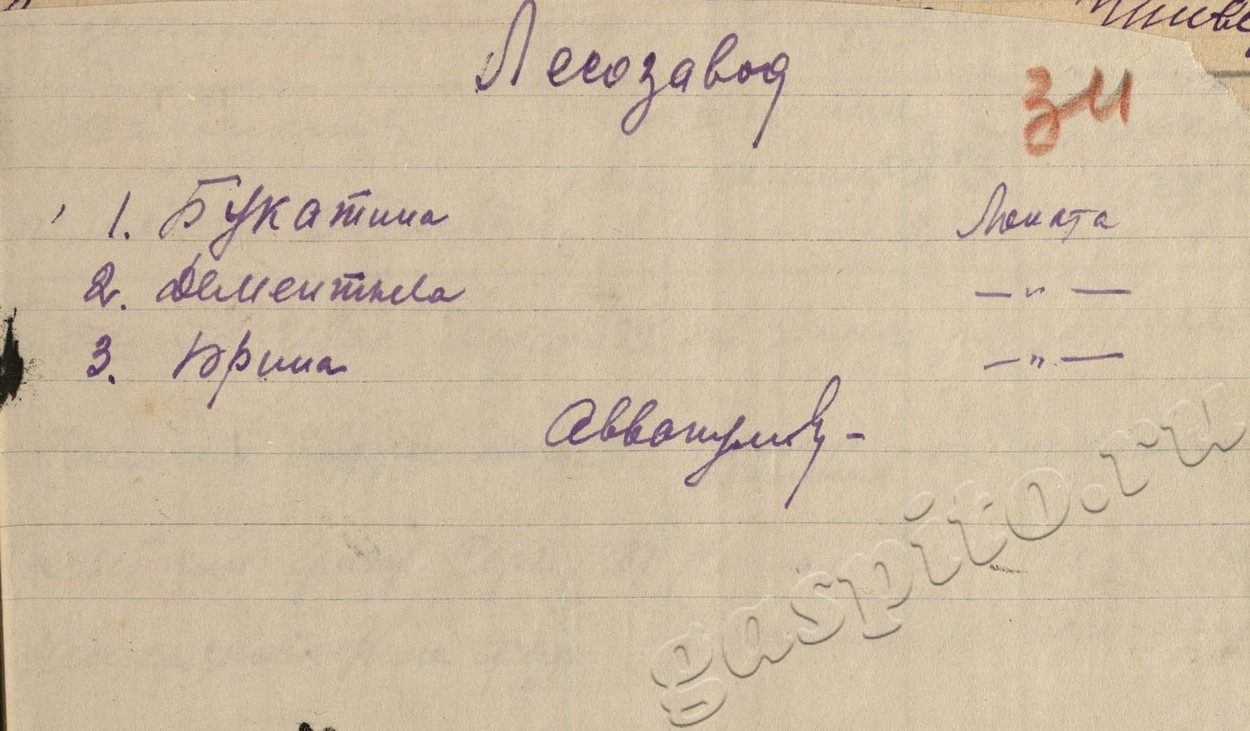 Лесозавод
1. Букатина Лопата
2. Дементьева — " —
3. Брина — " —
gaspito.ru